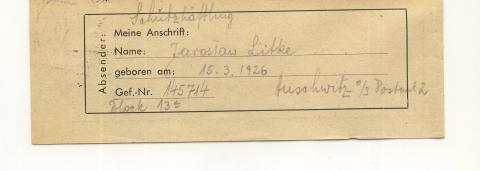 Schutzhäftling
Absender:
Meine Anschrift:
Name: Jarosław Litke
geboren am: 15.3.1926
Gef.-Nr. 145714 Auschwitz o/S Postamt 2
Block 13a